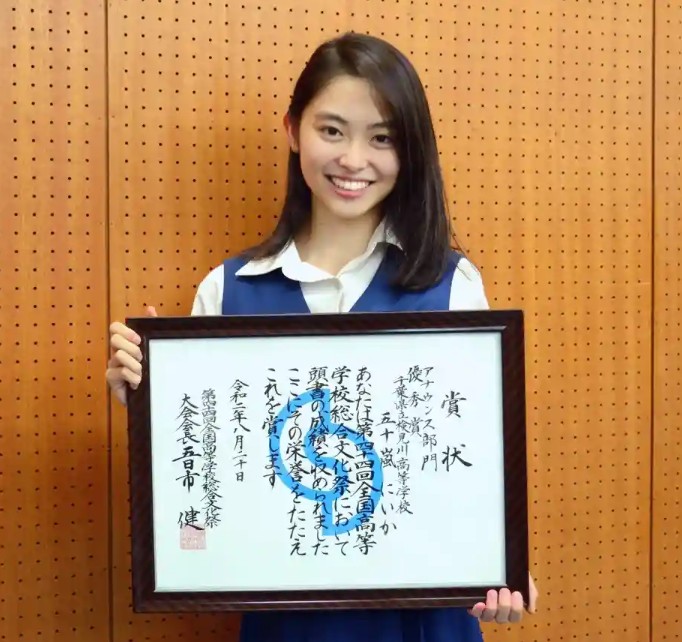 賞状
アナウンス部門
優秀賞
千葉県立検見川高等学校
五十嵐 にいか
あなたは第四四回全国高等
学校総合文化祭において
頭書の成績を収められました
ここにその栄誉をたたえ
これを賞します
令和二年八月二十日
第四四回全国高等学校総合文化祭
大会会長 五日市 健